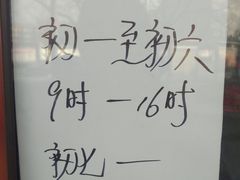 初一至初六
9时一16时
初七一